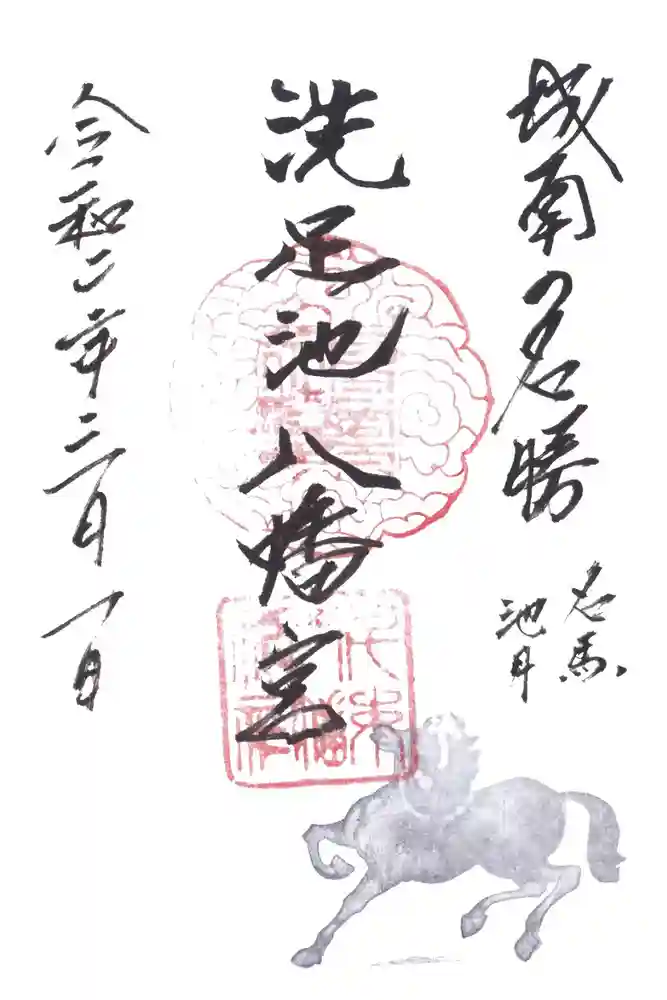 城南名勝
名馬
池月
洗足池八幡宮
令和二年三月一日